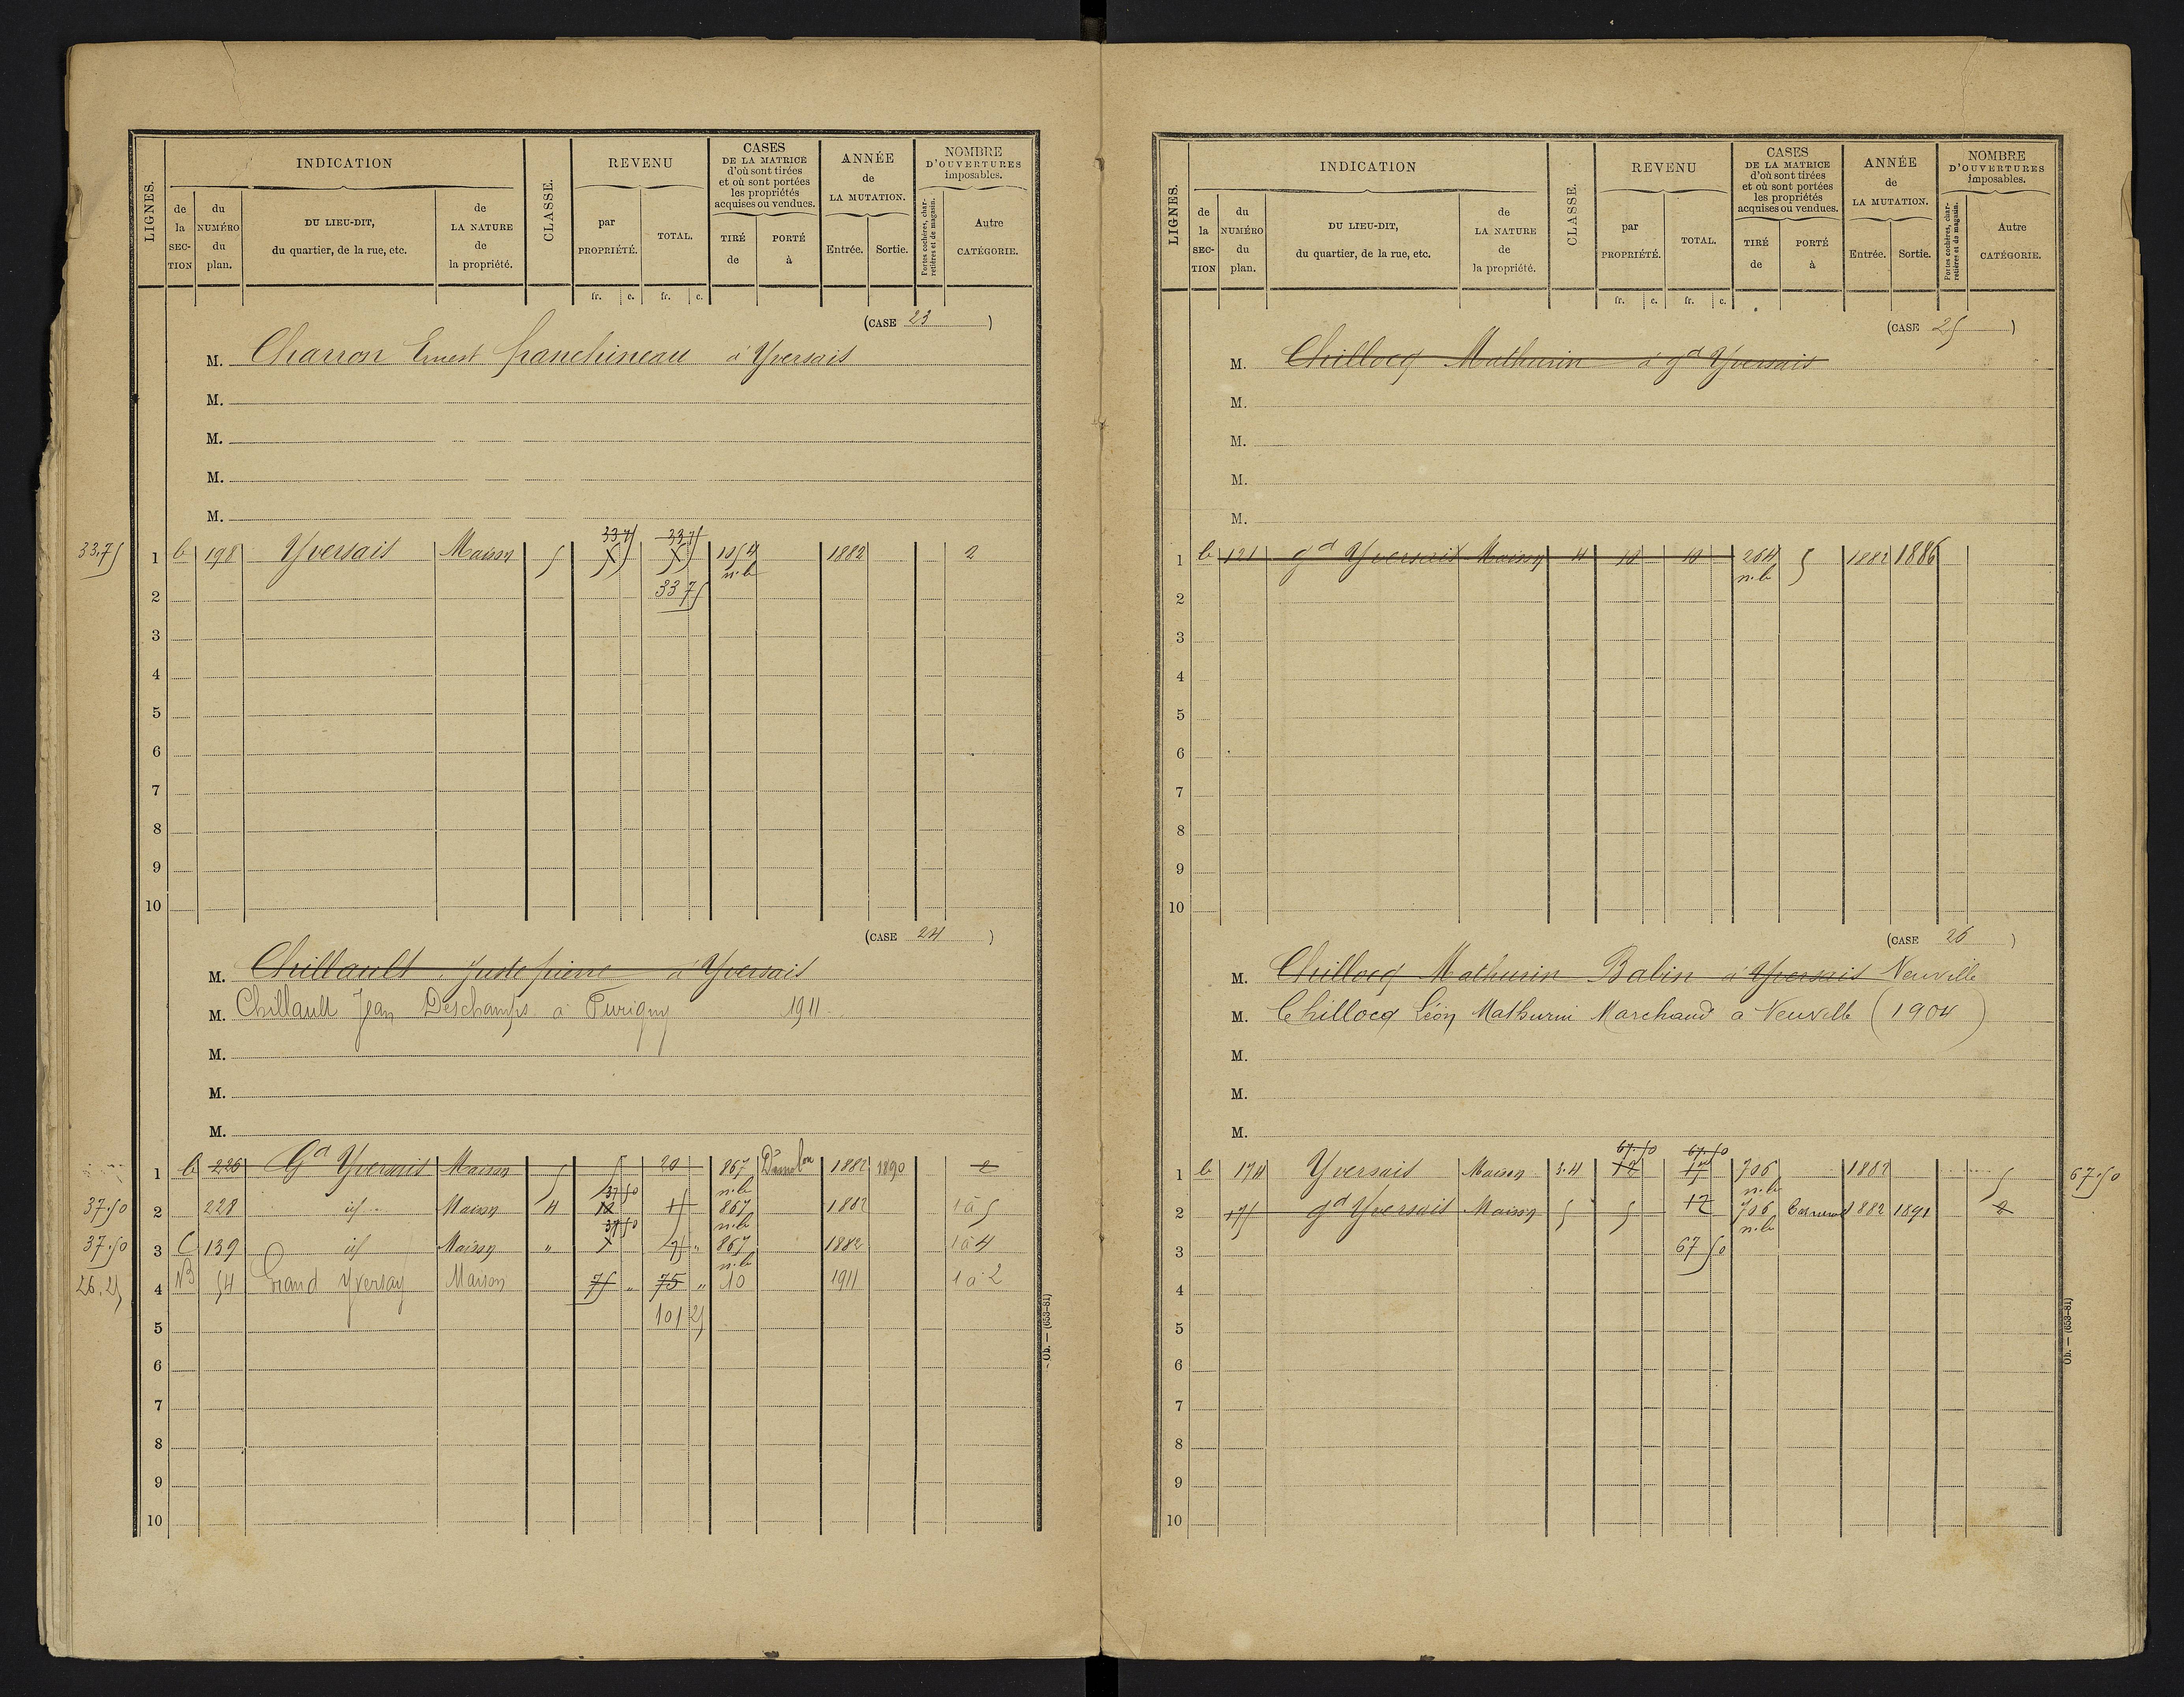 LIGNES.
INDICATION
de la SEC-TION
du NUMÉRO du plan.
DU LIEU-DIT, du quartier, de la rue, etc.
de LA NATURE de la propriété.
CLASSE.
REVENU
par PROPRIÉTÉ.
TOTAL.
fr. c. fr. c.
CASES DE LA MATRICE d'où sont tirées et où sont portées les propriétés acquises ou vendues.
TIRÉ de
PORTÉ à
ANNÉE de LA MUTATION.
Entrée. Sortie.
NOMBRE D'OUVERTURES imposables.
Portes cochères, charretières et de magasin.
Autre CATÉGORIE.
(CASE 23)
M. Charron Ernest franchineau à Yversais
M.
M.
M.
M.
33.75
33.75 33.75
1 b 198 Yversais Maison 5 1882 2
n.b
2 33 75
3
4
5
6
7
8
9
10
(CASE 24)
M. Chillault Juste pierre à Yversais
M. Chillault Jean Deschamps à Furigny 1911
M.
M.
M.
1 b 226 Gd Yversais Maison 5 5 20 867 1882 1890 2
n.b
37.50 2 228 id Maison 4 37.50 12 867 1882 1 à 5
n.b
37.50 3 C 139 id Maison " 37.50 867 1882 1 à 4
n.b
26.25 4 NB 54 Grand Yversay Maison 75 " 75 " 10 1911 1 à 2
101 25
5
6
7
8
9
10
Ob. — (653-81)
LIGNES.
INDICATION
de la SEC-TION
du NUMÉRO du plan.
DU LIEU-DIT, du quartier, de la rue, etc.
de LA NATURE de la propriété.
CLASSE.
REVENU
par PROPRIÉTÉ.
TOTAL.
fr. c. fr. c.
CASES DE LA MATRICE d'où sont tirées et où sont portées les propriétés acquises ou vendues.
TIRÉ de
PORTÉ à
ANNÉE de LA MUTATION.
Entrée. Sortie.
NOMBRE D'OUVERTURES imposables.
Portes cochères, charretières et de magasin.
Autre CATÉGORIE.
(CASE 25)
M. Chillocq Mathurin à gd Yversais
M.
M.
M.
M.
1 b 121 gd Yversais Maison 4 10 10 264 5 1882 1886
n.b
2
3
4
5
6
7
8
9
10
(CASE 26)
M. Chillocq Mathurin Babin à Yversais Neuville
M. Chillocq Léon Mathurin Marchand à Neuville (1904)
M.
M.
M.
67.50 67.50
1 b 174 Yversais Maison 3.4 12 706 1882 5 67.50
n.b
2 175 gd Yversais Maison 5 5 17 706 1882 1891 2
n.b
3 67 50
4
5
6
7
8
9
10
Ob. — (653-81)